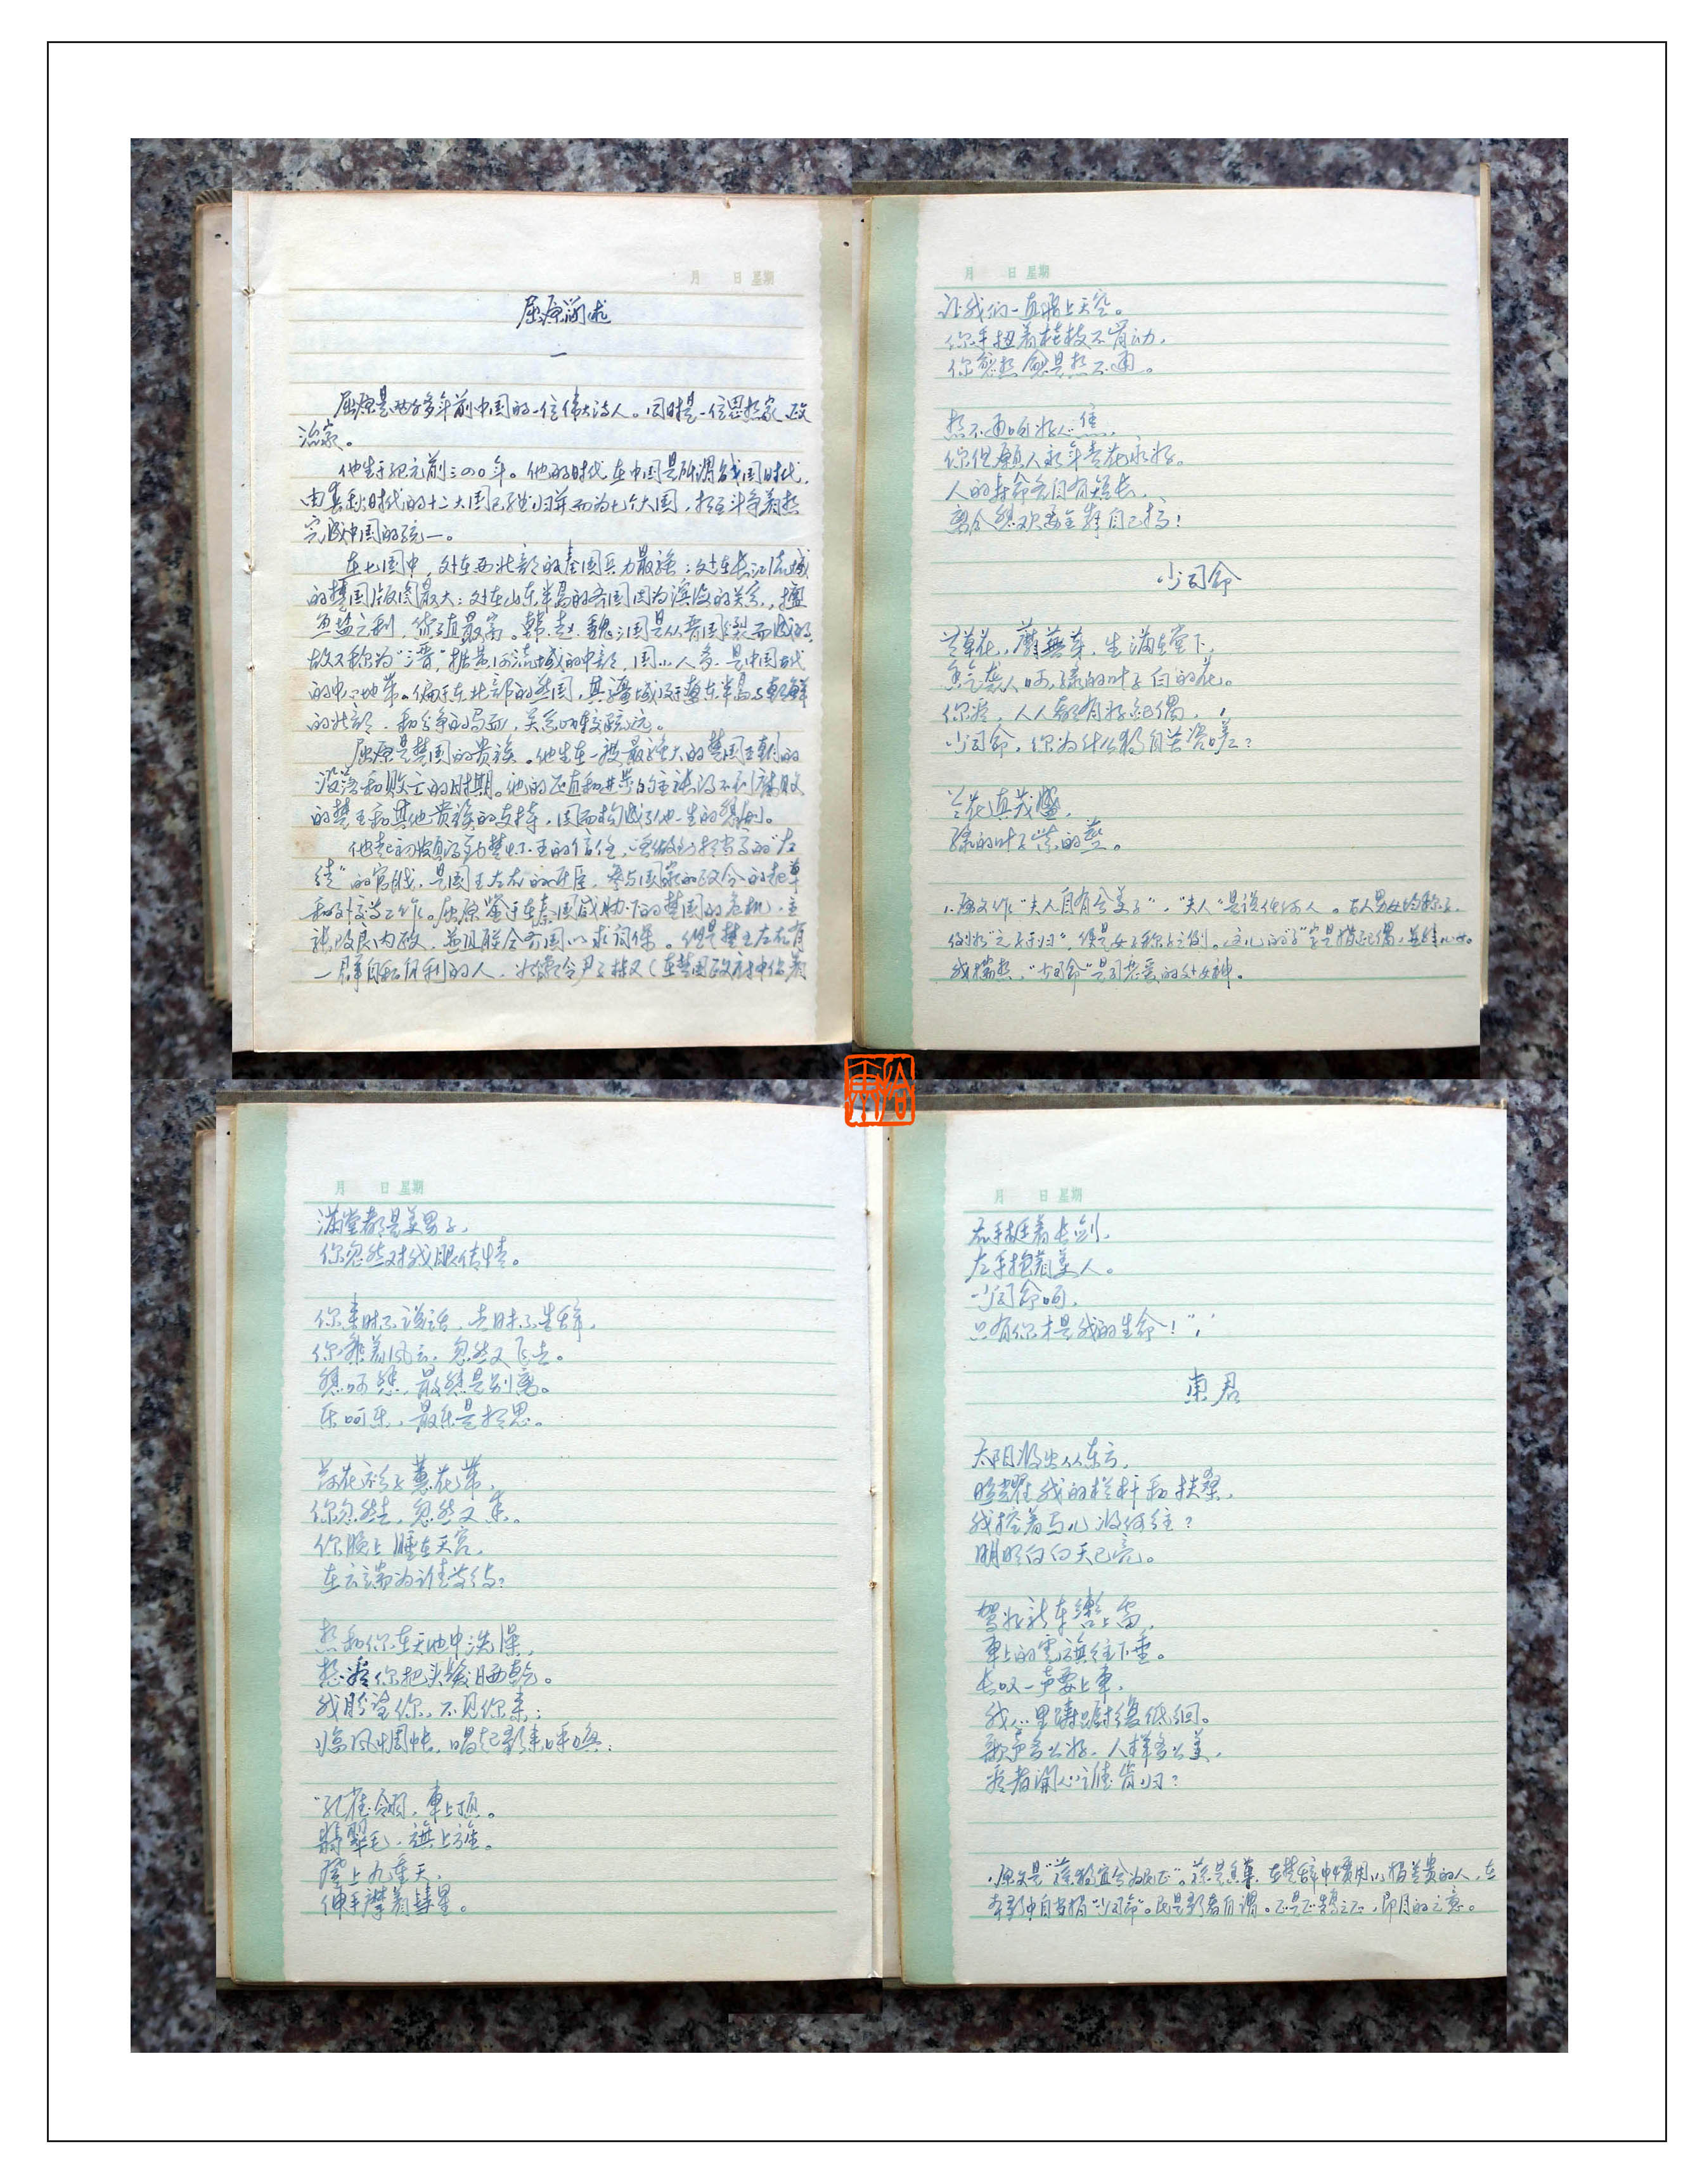 月 日 星期
屈原简述
一
屈原是两千多年前中国的一位伟大诗人。同时是一位思想家、政
治家。
他生于纪元前三四〇年。他的时代在中国是所谓战国时代,
由春秋时代的十二大国已经归并而为七个大国,相互斗争着想
完成中国的统一。
在七国中,处在西北部的秦国兵力最强;处在长江流域
的楚国版图最大;处在山东半岛的齐国因为滨海的关系,擅
鱼盐之利,货殖最富。韩、赵、魏三国是从晋国分裂而成的,
故又称为“三晋”,据黄河流域的中部,国小人多,是中国古代
的中心地带。偏于东北部的燕国,其疆域跨于辽东半岛与朝鲜
的北部,和纷争的局面,关系比较疏远。
屈原是楚国的贵族。他生在一被最强大的楚国王朝的
没落和败亡的时期。他的正直和进步的主张得不到腐败
的楚王和其他贵族的支持,因而构成了他一生的悲剧。
他起初颇得到楚怀王的信任,曾做到相当高的“左
徒”的官职,是国王左右的近臣,参与国家的政令的起草
和外交等工作。屈原鉴于在秦国威胁下的楚国的危机,主
张改良内政,并且联合齐国以求同保。但是楚王左右有
一群自私自利的人,如像令尹子椒又(在楚国政府中仅着
月 日 星期
让我们一直踏上天空。
你手扭着桂枝不肯动,
你愈想愈是想不通。
想不通呵好心焦,
你但愿人永年青花永好。
人的寿命各自有短长,
离合悲欢要全靠自己搞!
少司命
兰草花,蘼蕪芽,生满在堂下,
香气袭人呵,绿的叶子白的花。
你瞧,人人都有好配偶,
少司命,你为什么独自苦咨嗟?
兰花真茂盛,
绿的叶子紫的茎。
1.原文作“夫人自有兮美子”,“夫人”是说任何人。古人男女均称子,
例如“之子于归”,便是女子称子之例。这儿的“子”字是指配偶,
我揣想,“少司命”是司恋爱的处女神。
月 日 星期
满堂都是美男子,
你忽然对我眼传情。
你来时不说话,去时不告辞,
你乘着风云,忽然又飞去。
悲呵悲,最悲是别离。
乐呵乐,最乐是相思。
荷花衫子蕙花带,
你忽然去,忽然又来。
你晚上睡在天宫,
在云端为谁等待?
想和你在天池中洗澡,
想看你把头髮晒乾。
我盼望你,不见你来;
临风惆怅,唱起歌来呼唤:
“孔雀翎,車上顶。
翡翠毛,旗上旌。
登上九重天,
伸手摩着彗星。
月 日 星期
右手挺着长剑,
左手抱着美人。
少司命呵,
只有你才是我的生命!”1
東君
太阳将出从东方,
照耀在我的栏杆和扶桑,
我控着马儿将何往?
明明白白天已亮。
驾好龙车鞭上雷,
車上的雲旗往下垂。
长叹一声要上車,
我心里踌躇復低徊。
歌声多么好,人样多么美,
看者开心谁肯归?
1.原文是“荪独宜兮为民正”。荪是香草,在楚辞中惯用以指美贵的人,在
本歌中自当指“少司命”。民是歌者自谓。正是正鹄之正,即目的之意。